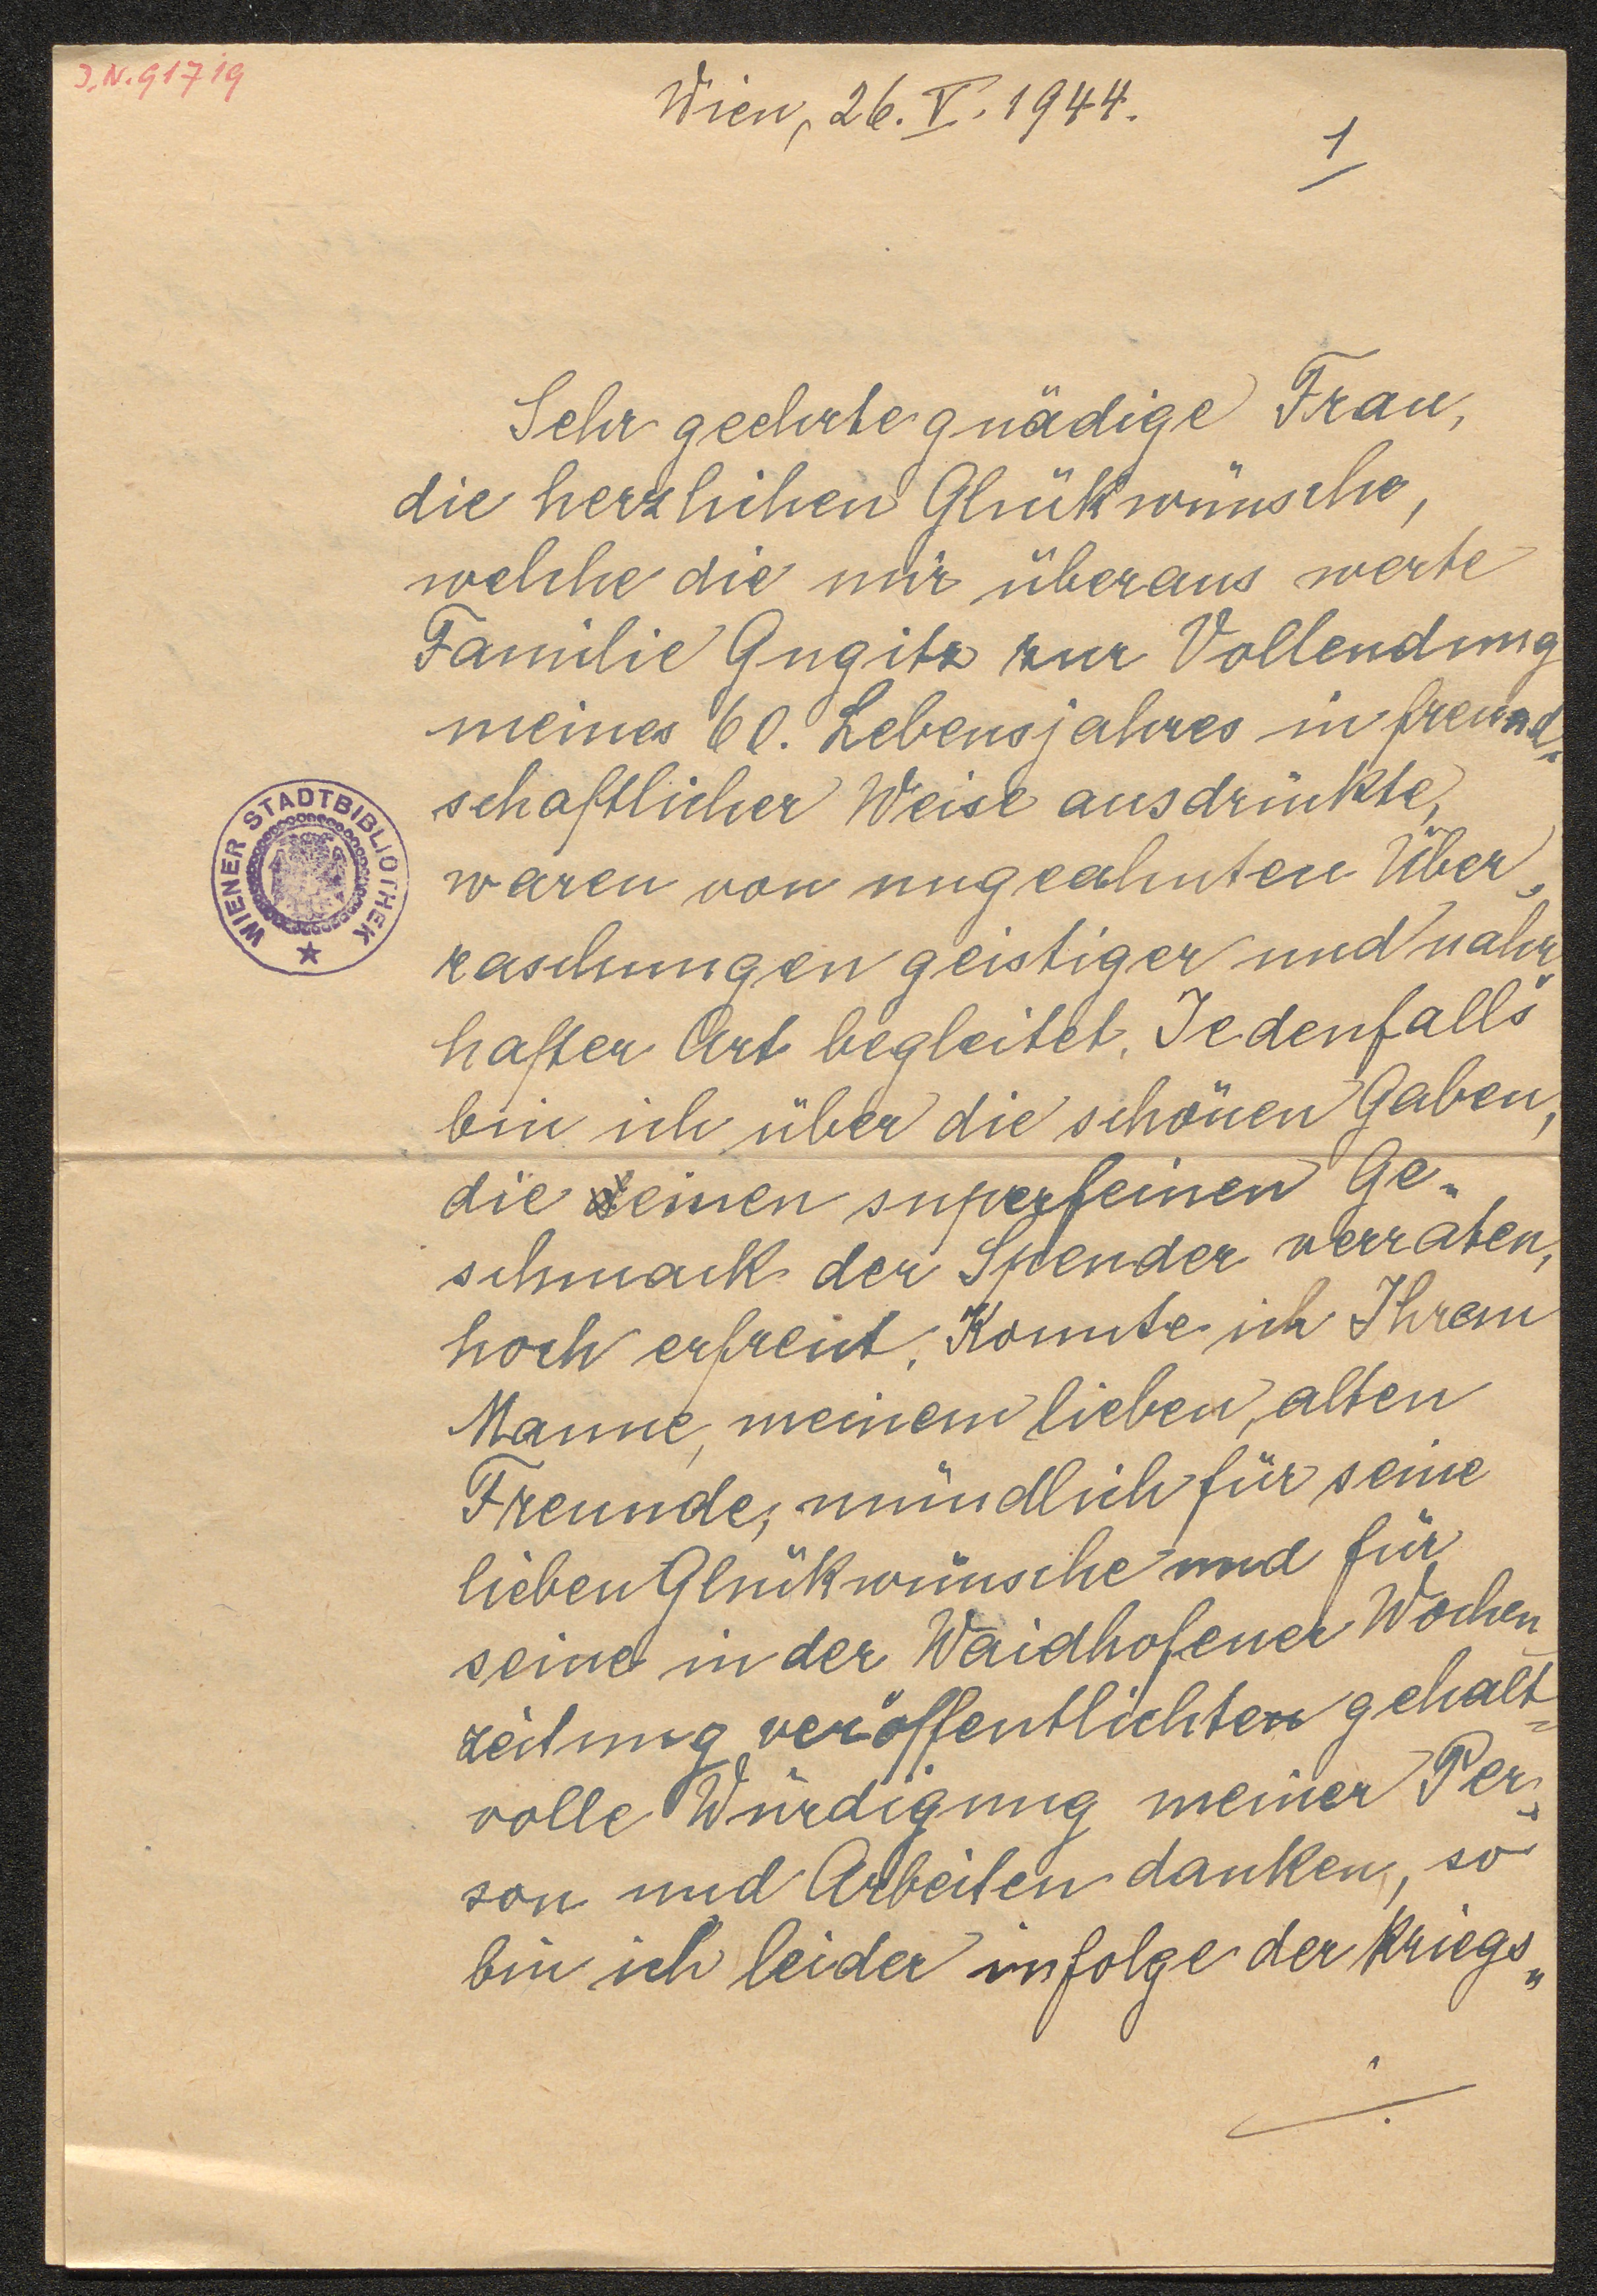 J.N. 91719
Wien, 26. V. 1944.
1
Sehr geehrte gnädige Frau,
die herzlichen Glückwünsche,
welche die mir überaus werte
Familie Gugitz zur Vollendung
meines 60. Lebensjahres in freund„
schaftlicher Weise ausdrückte,
waren von ungeahnten Über„
raschungen geistiger und nahr„
hafter Art begleitet. Jedenfalls
bin ich über die schönen Gaben,
die einen superfeinen Ge„
schmack der Spender verraten,
hoch erfreut. Konnte ich Ihrem
Manne, meinem lieben, alten
Freunde, mündlich für seine
lieben Glückwünsche und für
seine in der Waidhofener Wochen
zeitung veröffentlichten gehalt„
volle Würdigung meiner Per„
son und Arbeiten danken, so
bin ich leider infolge der Kriegs„
./.
WIENER STADTBIBLIOTHEK